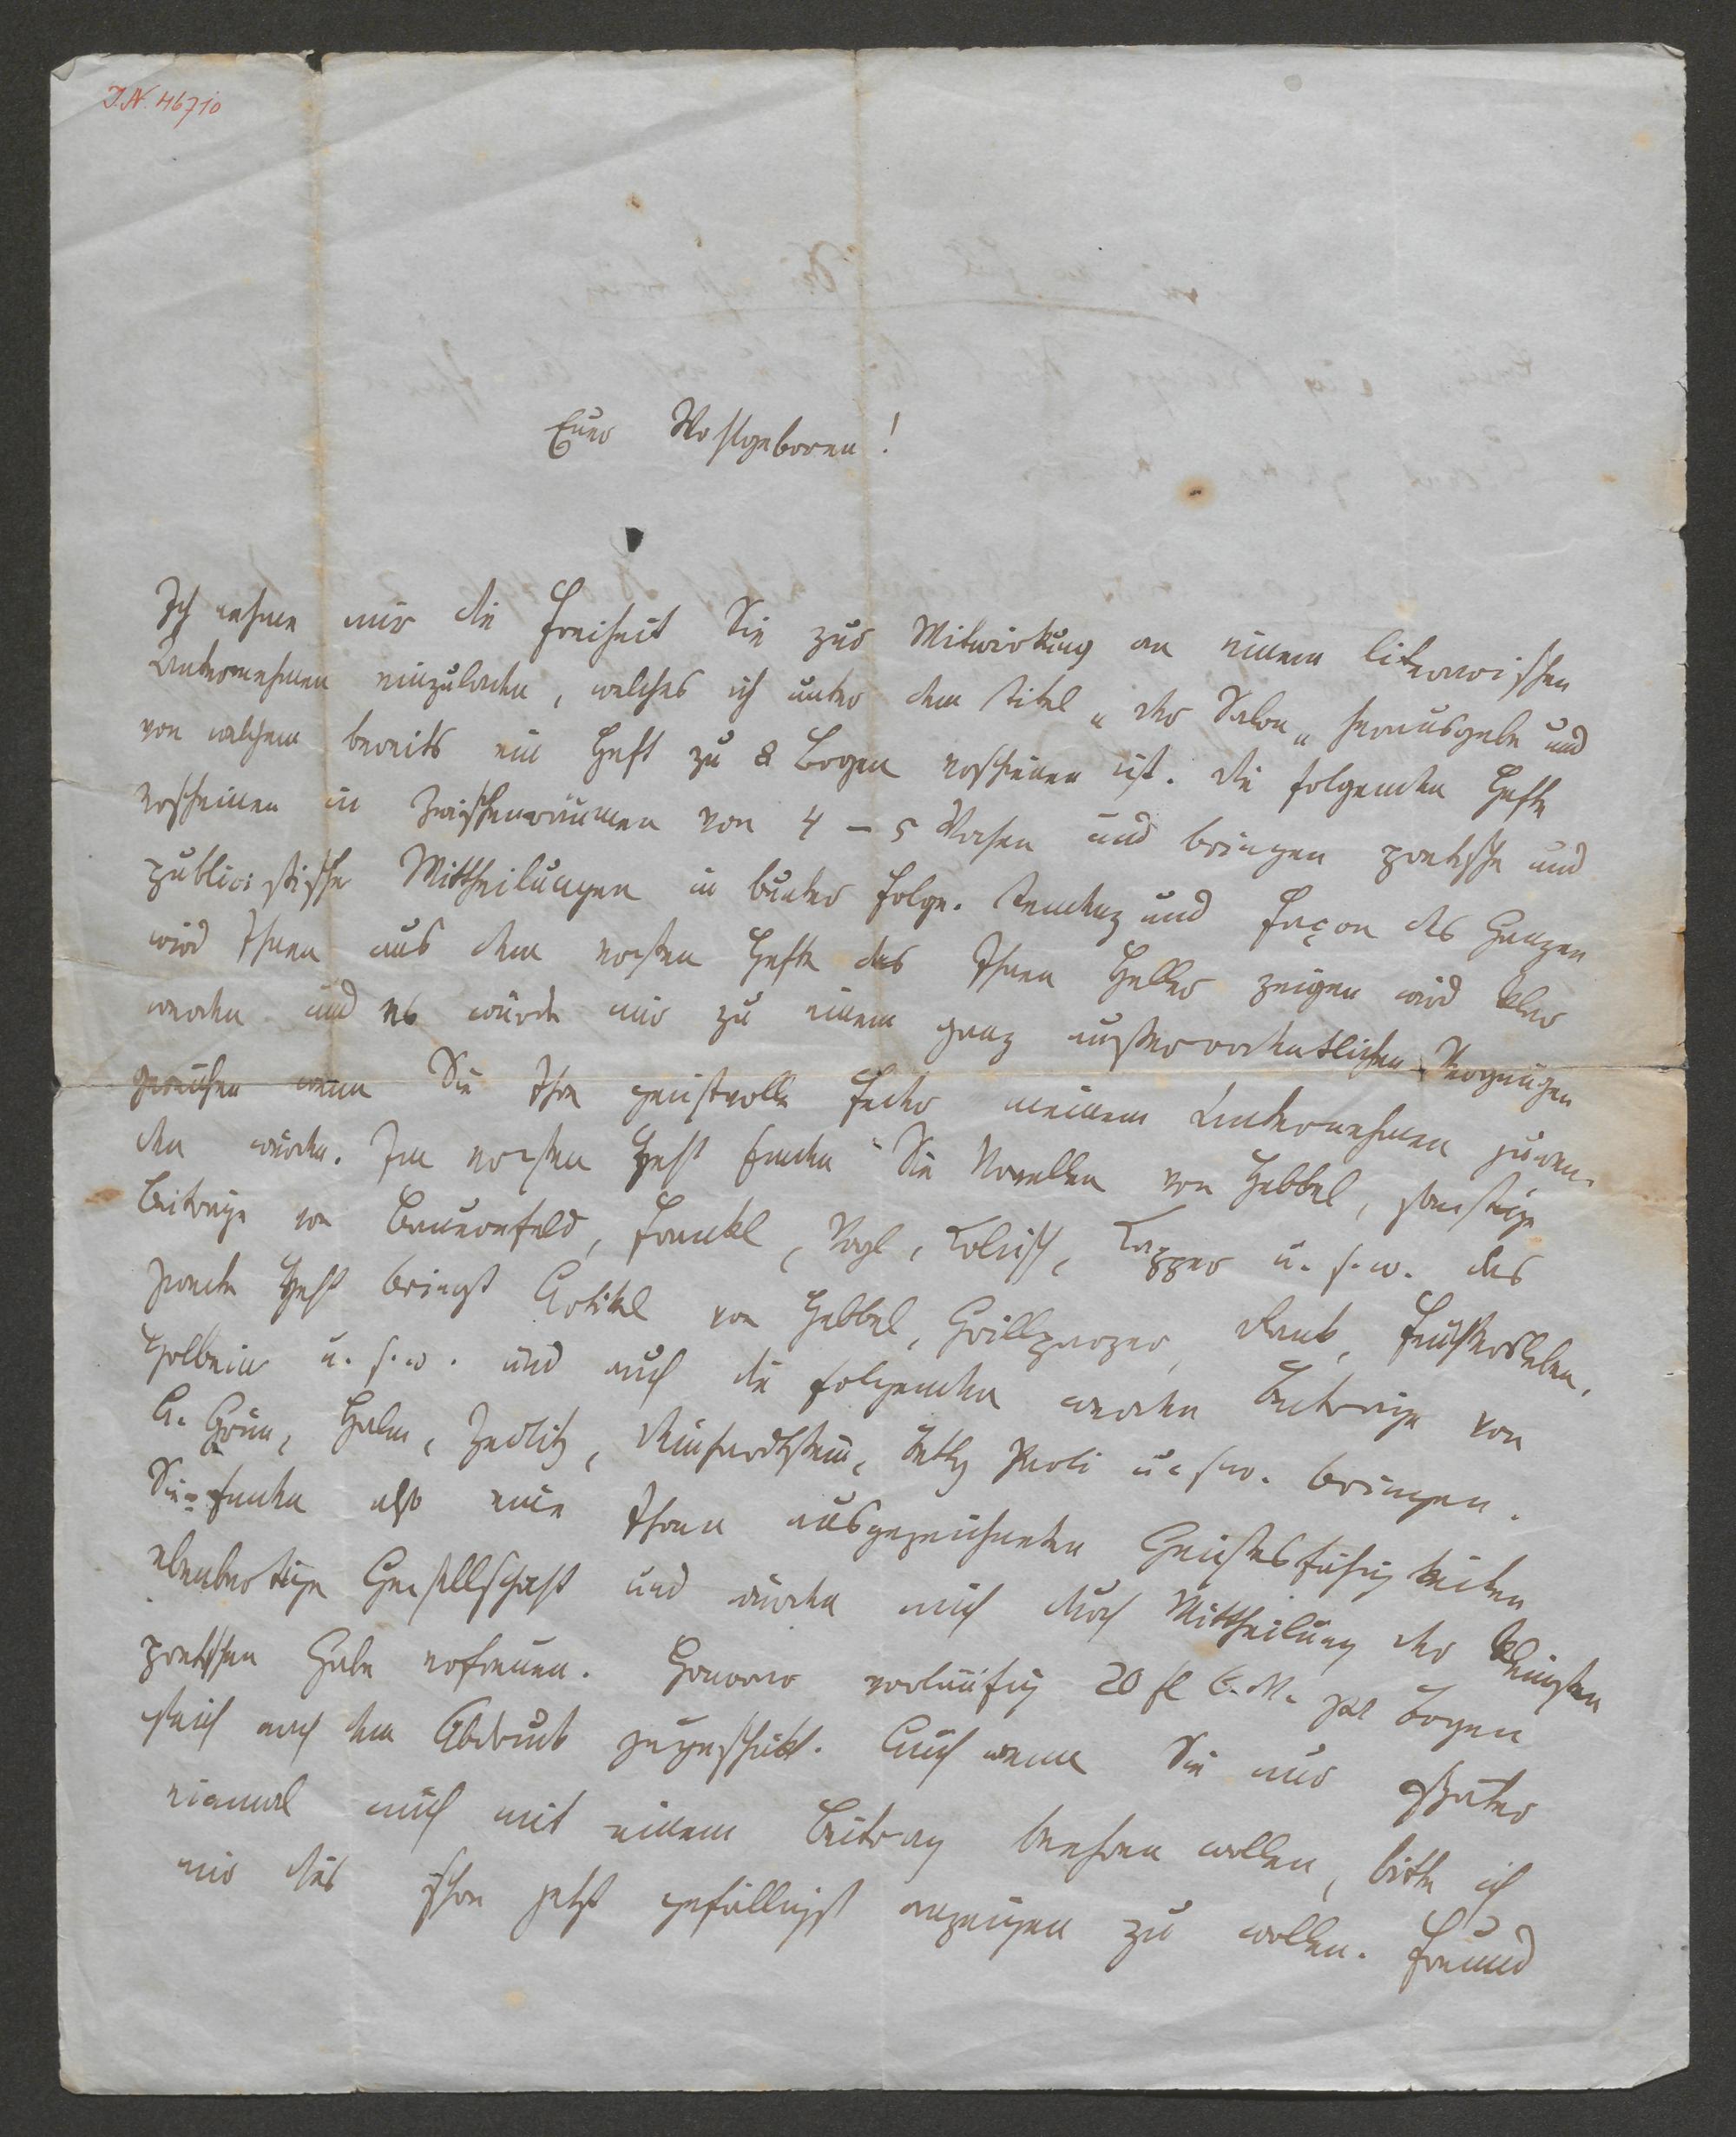 I.N. 46710
Euer Wohlgeboren!
Ich nehme mir die Freiheit Sie zur Mitwirkung an einem literarischen
Unternehmen einzuladen, welches ich unter dem Titel „der Salon„ herausgebe und
von welchem bereits ein Heft zu 8 Bogen erschienen ist. Die folgenden Hefte
erscheinen in Zwischenräumen von 4 – 5 Wochen und bringen poetische und
publicistische Mittheilungen in bunter Folge. Tendenz und Façon des Ganzen
wird Ihnen aus dem ersten Hefte das Ihnen Heller zeigen wird klar
werden und es würde mir zu einem ganz außerordentlichen Vergnügen
gereichen wenn Sie Ihre geistvolle Feder meinem Unternehmen zuwen-
den würden. Im ersten Heft finden Sie Novellen von Hebbel, sonstige
Beiträge von Bauernfeld, Frankl, Vogl, Kolisch, Kapper u. s. w. das
zweite Heft bringt Artikel von Hebbel, Grillparzer, Feuchtersleben,
Holbein u. s. w. und auch die folgenden werden Beiträge von
A. Grün, Halm, Zedlitz, Deinhardtstein, Betty Paoli u. s. w. bringen.
Sie finden also eine Ihren ausgezeichneten Geistesfähigkeiten
ebenbürtige Gesellschaft und würden mich durch Mittheilung der kleinsten
poetischen Gabe erfreuen. Honorar vorläufig 20 fl C. M. pr Bogen
gleich nach dem Abdruck zugeschickt. Auch wenn Sie nur später
einmal mich mit einem Beitrag beehren wollen, bitte ich
mir dies schon jetzt gefälligst anzeigen zu wollen. Freund